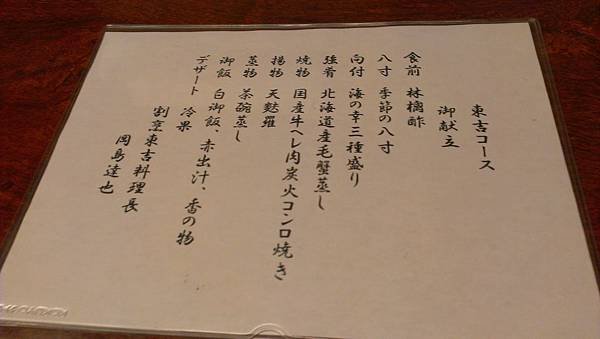 東吉コース
御献立
食前 林檎酢
八寸 季節の八寸
向付 海の幸三種盛り
強肴 北海道産毛蟹蒸し
焼物 国産牛ヘレ肉炭火コンロ焼き
揚物 天麩羅
蒸物 茶碗蒸し
御飯 白御飯、赤出汁、香の物
デザート 冷果
割烹東吉料理長
岡島達也